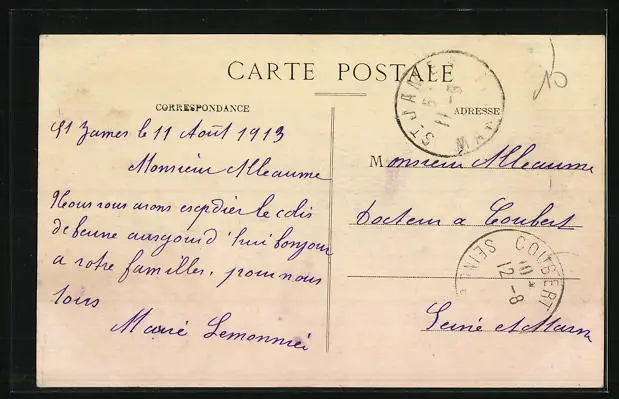 CARTE POSTALE
CORRESPONDANCE
ADRESSE
St James le 11 Août 1913
Monsieur Alleaume
Nous vous avons expdier le colis
de beurre aurgourd'hui bonjour
a votre familles, pour nous
tous
Marie Lemonnier
Monsieur Alleaume
Docteur a Coubert
Seine et Marne
ST JAMES
11 -8
COUBERT
SEINE
10 *
12 -8